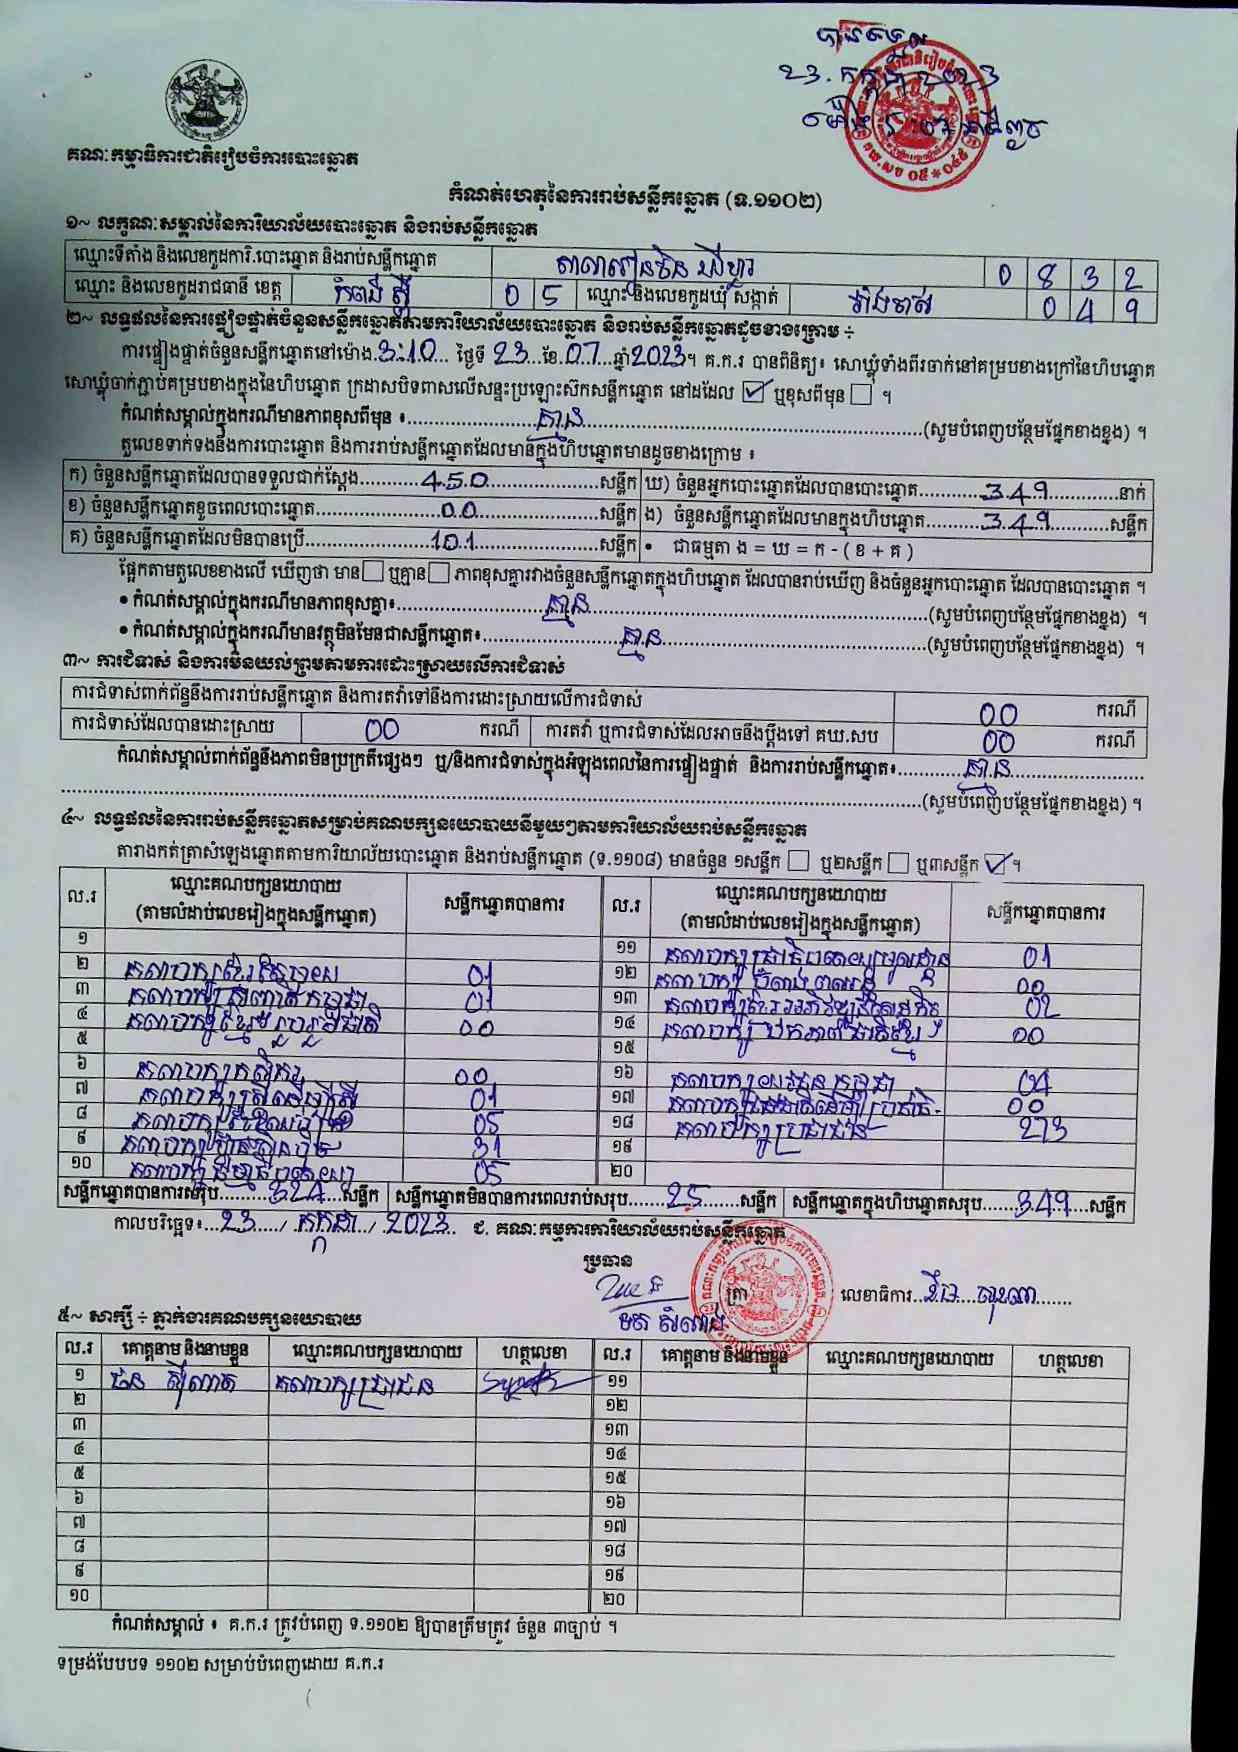 បានទទួល
23. កក្កដា 2023
គណៈកម្មាធិការជាតិរៀបចំការបោះឆ្នោត
កំណត់ហេតុនៃការរាប់សន្លឹកឆ្នោត (ទ.១១០២)
១~ លក្ខណៈសម្គាល់នៃការិយាល័យបោះឆ្នោត និងរាប់សន្លឹកឆ្នោត
ឈ្មោះទីតាំង និងលេខកូដការិ.បោះឆ្នោត និងរាប់សន្លឹកឆ្នោត 0 8 3 2
ឈ្មោះ និងលេខកូដរាជធានី ខេត្ត កំពង់ស្ពឺ 0 5 ឈ្មោះ និងលេខកូដឃុំ សង្កាត់ 0 4 9
២~ លទ្ធផលនៃការផ្ទៀងផ្ទាត់ចំនួនសន្លឹកឆ្នោតតាមការិយាល័យបោះឆ្នោត និងរាប់សន្លឹកឆ្នោតដូចខាងក្រោម ÷
ការផ្ទៀងផ្ទាត់ចំនួនសន្លឹកឆ្នោតនៅម៉ោង.3:10... ថ្ងៃទី 23 ខែ.07...ឆ្នាំ2023។ គ.ក.រ បានពិនិត្យ៖ សោឃ្លុំទាំងពីរចាក់នៅគម្របខាងក្រៅនៃហិបឆ្នោត
សោឃ្លុំចាក់ភ្ជាប់គម្របខាងក្នុងនៃហិបឆ្នោត ក្រដាសបិទពាសលើសន្ទះប្រឡោះសឹកសន្លឹកឆ្នោត នៅដដែល ☑ ឬខុសពីមុន ☐ ។
កំណត់សម្គាល់ក្នុងករណីមានភាពខុសពីមុន ៖ គ្មាន (សូមបំពេញបន្ថែមផ្នែកខាងខ្នង) ។
តួលេខទាក់ទងនឹងការបោះឆ្នោត និងការរាប់សន្លឹកឆ្នោតដែលមានក្នុងហិបឆ្នោតមានដូចខាងក្រោម ៖
ក) ចំនួនសន្លឹកឆ្នោតដែលបានទទួលជាក់ស្តែង 450 សន្លឹក ឃ) ចំនួនអ្នកបោះឆ្នោតដែលបានបោះឆ្នោត 349 នាក់
ខ) ចំនួនសន្លឹកឆ្នោតខូចពេលបោះឆ្នោត 00 សន្លឹក ង) ចំនួនសន្លឹកឆ្នោតដែលមានក្នុងហិបឆ្នោត 349 សន្លឹក
គ) ចំនួនសន្លឹកឆ្នោតដែលមិនបានប្រើ 101 សន្លឹក • ជាធម្មតា ង = ឃ = ក - ( ខ + គ )
ផ្អែកតាមតួលេខខាងលើ ឃើញថា មាន ☐ ឬគ្មាន ☐ ភាពខុសគ្នារវាងចំនួនសន្លឹកឆ្នោតក្នុងហិបឆ្នោត ដែលបានរាប់ឃើញ និងចំនួនអ្នកបោះឆ្នោត ដែលបានបោះឆ្នោត ។
• កំណត់សម្គាល់ក្នុងករណីមានភាពខុសគ្នា៖ គ្មាន (សូមបំពេញបន្ថែមផ្នែកខាងខ្នង) ។
• កំណត់សម្គាល់ក្នុងករណីមានវត្ថុមិនមែនជាសន្លឹកឆ្នោត៖ គ្មាន (សូមបំពេញបន្ថែមផ្នែកខាងខ្នង) ។
៣~ ការជំទាស់ និងការមិនយល់ព្រមតាមការដោះស្រាយលើការជំទាស់
ការជំទាស់ពាក់ព័ន្ធនឹងការរាប់សន្លឹកឆ្នោត និងការតវ៉ាទៅនឹងការដោះស្រាយលើការជំទាស់ 00 ករណី
ការជំទាស់ដែលបានដោះស្រាយ 00 ករណី ការតវ៉ា ឬការជំទាស់ដែលអាចនឹងប្តឹងទៅ គឃ.សប 00 ករណី
កំណត់សម្គាល់ពាក់ព័ន្ធនឹងភាពមិនប្រក្រតីផ្សេងៗ ឬ/និងការជំទាស់ក្នុងអំឡុងពេលនៃការផ្ទៀងផ្ទាត់ និងការរាប់សន្លឹកឆ្នោត៖ គ្មាន
(សូមបំពេញបន្ថែមផ្នែកខាងខ្នង) ។
៤~ លទ្ធផលនៃការរាប់សន្លឹកឆ្នោតសម្រាប់គណបក្សនយោបាយនីមួយៗតាមការិយាល័យរាប់សន្លឹកឆ្នោត
តារាងកត់ត្រាសំឡេងឆ្នោតតាមការិយាល័យបោះឆ្នោត និងរាប់សន្លឹកឆ្នោត (ទ.១១០៨) មានចំនួន ១សន្លឹក ☐ ឬ២សន្លឹក ☐ ឬ៣សន្លឹក ☑ ។
ល.រ ឈ្មោះគណបក្សនយោបាយ សន្លឹកឆ្នោតបានការ ល.រ ឈ្មោះគណបក្សនយោបាយ សន្លឹកឆ្នោតបានការ
(តាមលំដាប់លេខរៀងក្នុងសន្លឹកឆ្នោត) (តាមលំដាប់លេខរៀងក្នុងសន្លឹកឆ្នោត)
១ ១១ គណបក្សប្រជាធិបតេយ្យមូលដ្ឋាន 01
២ គណបក្ស 01 ១២ គណបក្ស 00
៣ គណបក្ស 01 ១៣ គណបក្សខ្មែរអភិវឌ្ឍន៍សេដ្ឋកិច្ច 02
៤ គណបក្សខ្មែររួបរួមជាតិ 00 ១៤ គណបក្សឯកភាពជាតិខ្មែរ 00
៥ ១៥
៦ គណបក្សកសិករ 00 ១៦ គណបក្សយុវជនកម្ពុជា 04
៧ គណបក្សស្ត្រីដើម្បីស្ត្រី 01 ១៧ គណបក្ស 00
៨ គណបក្ស 05 ១៨ គណបក្សប្រជាជន 273
៩ គណបក្សហ៊្វុនស៊ិនប៉ិច 31 ១៩
១០ គណបក្សធម្មាធិបតេយ្យ 05 ២០
សន្លឹកឆ្នោតបានការសរុប 324 សន្លឹក សន្លឹកឆ្នោតមិនបានការពេលរាប់សរុប 25 សន្លឹក សន្លឹកឆ្នោតក្នុងហិបឆ្នោតសរុប 349 សន្លឹក
កាលបរិច្ឆេទ៖ 23 / កក្កដា / 2023 ជ. គណៈកម្មការការិយាល័យរាប់សន្លឹកឆ្នោត
ប្រធាន
ត្រា លេខាធិការ
៥~ សាក្សី ÷ ភ្នាក់ងារគណបក្សនយោបាយ
ល.រ គោត្តនាម និងនាមខ្លួន ឈ្មោះគណបក្សនយោបាយ ហត្ថលេខា ល.រ គោត្តនាម និងនាមខ្លួន ឈ្មោះគណបក្សនយោបាយ ហត្ថលេខា
១ គណបក្សប្រជាជន ១១
២ ១២
៣ ១៣
៤ ១៤
៥ ១៥
៦ ១៦
៧ ១៧
៨ ១៨
៩ ១៩
១០ ២០
កំណត់សម្គាល់ ៖ គ.ក.រ ត្រូវបំពេញ ទ.១១០២ ឱ្យបានត្រឹមត្រូវ ចំនួន ៣ច្បាប់ ។
ទម្រង់បែបបទ ១១០២ សម្រាប់បំពេញដោយ គ.ក.រ